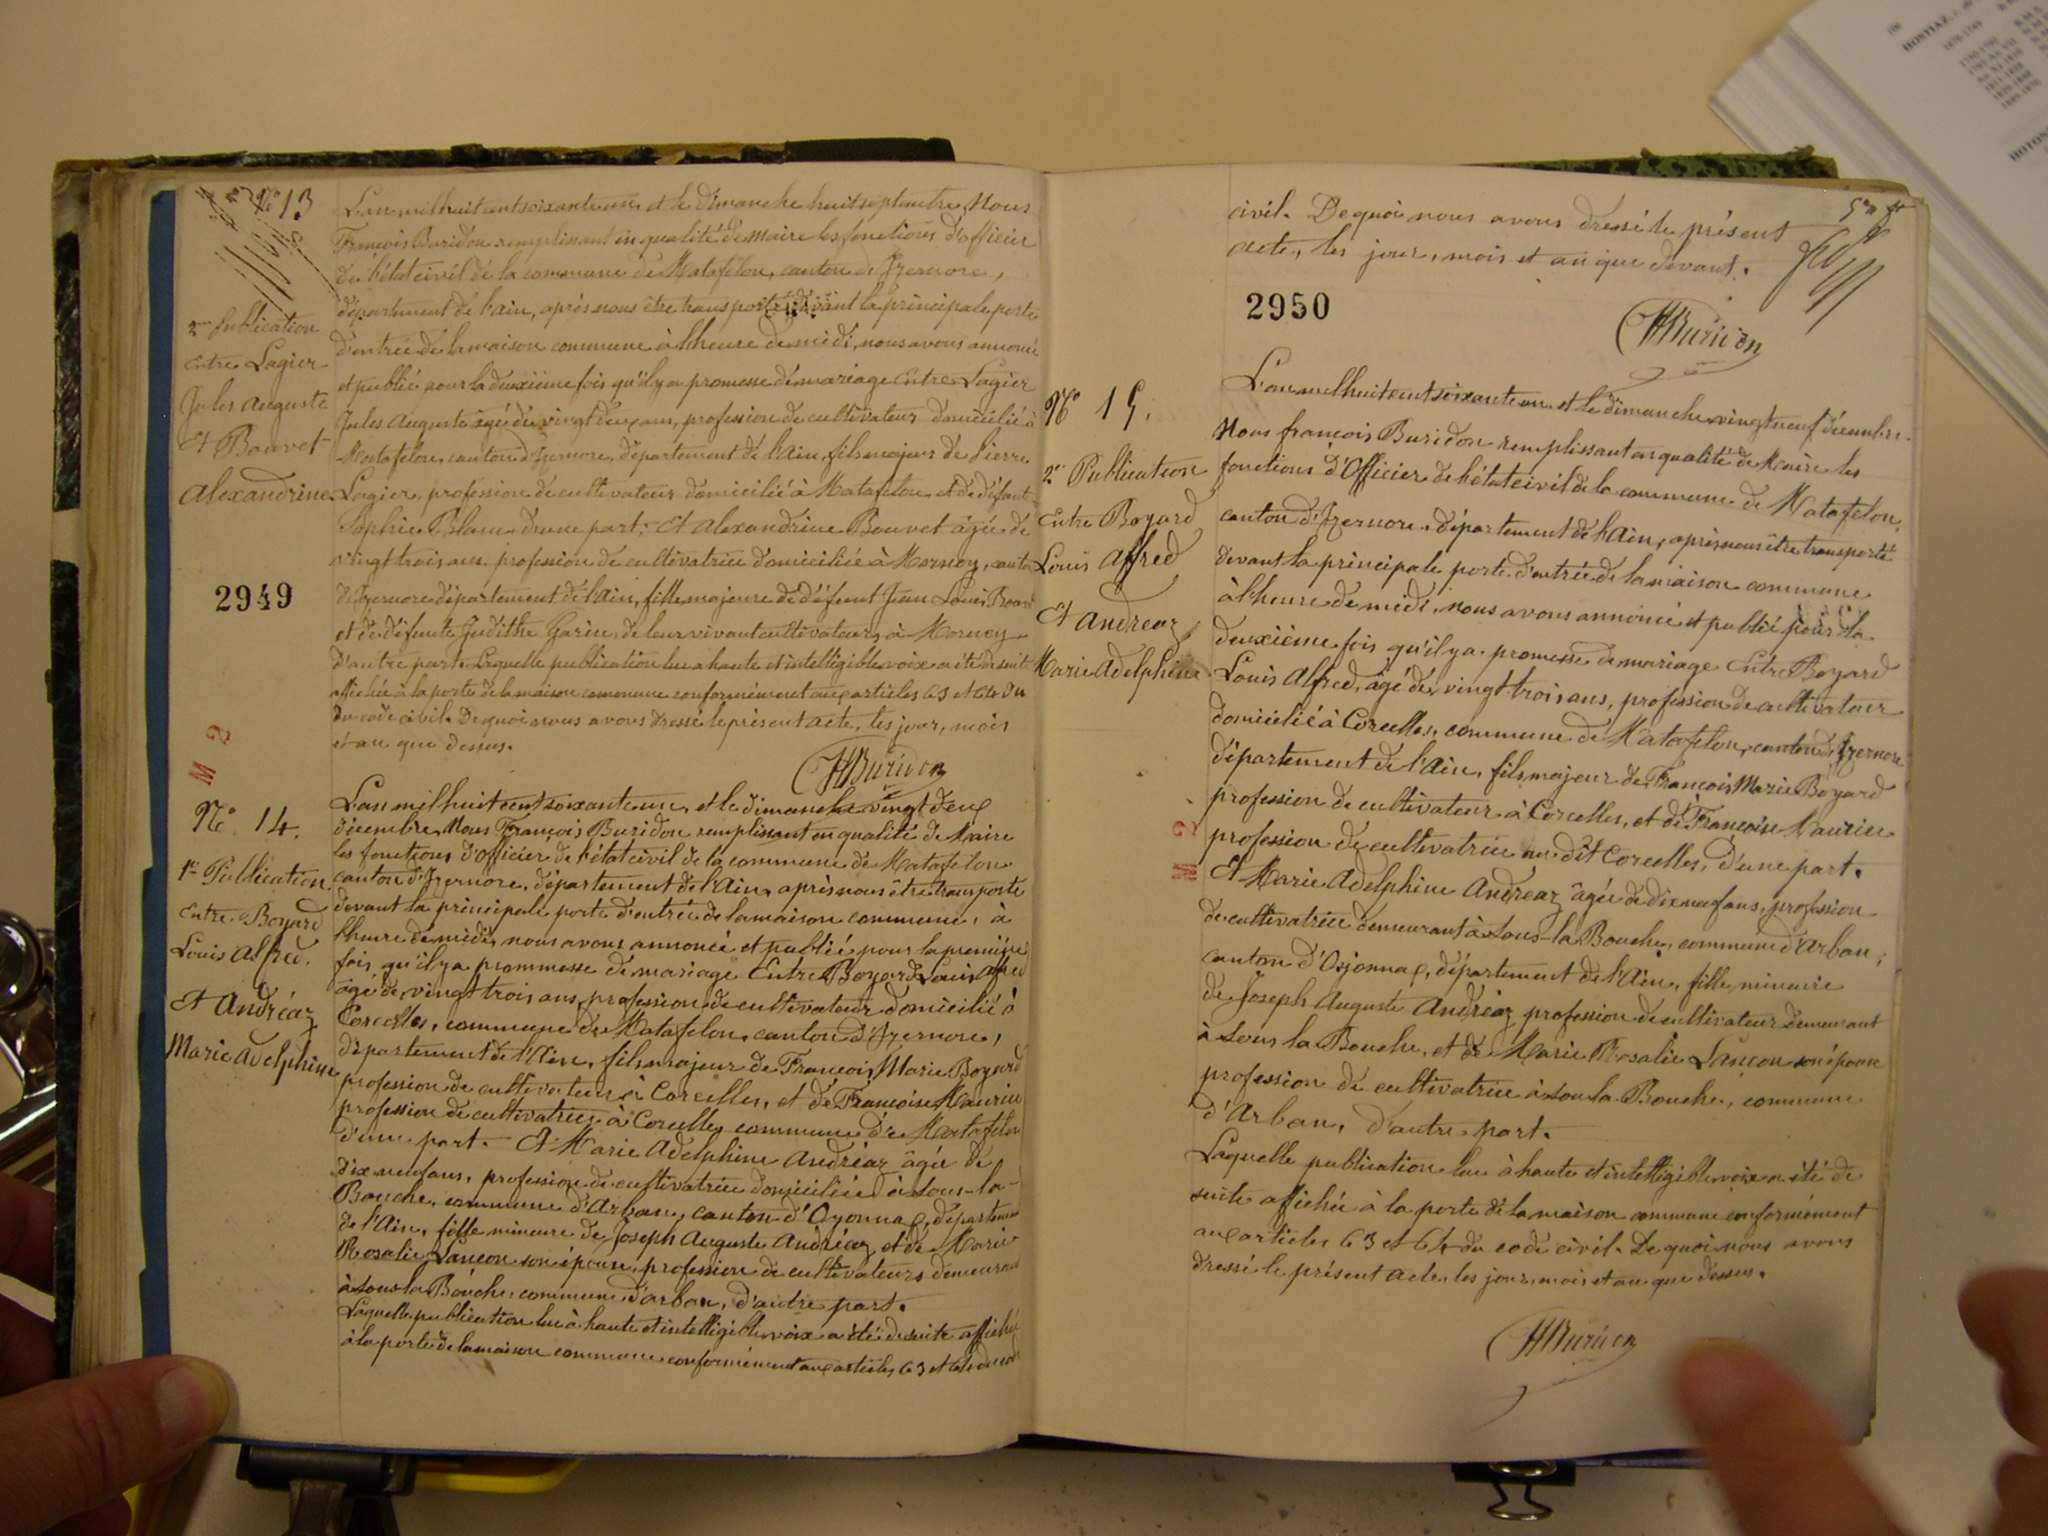 N° 13
2me Publication
Entre Lagier
Jules Auguste
Et Bouvet
Alexandrine
2949
L'an mil huit cent soixante un, et le dimanche huit septembre, Nous
François Buridon remplissant en qualité de Maire les fonctions d'officier
de l'état civil de la commune de Matafelon, canton d'Izernore,
département de l'ain, après nous être transporté devant la principale porte
d'entrée de la maison commune à l'heure de midi, nous avons annoncé
et publié pour la deuxième fois qu'il y a promesse de mariage Entre Lagier
Jules Auguste âgé de vingt deux ans, profession de cultivateur domicilié à
Matafelon, canton d'Izernore, département de l'Ain, fils majeur de Pierre
Lagier, profession de cultivateur domicilié à Matafelon et de défunte
Sophie d'une part; Et Alexandrine Bouvet âgée de
vingt trois ans, profession de cultivatrice domiciliée à Mornay, canton
d'Izernore département de l'Ain, fille majeure de défunt Jean Louis Bouvet
et de défunte Judithe Garin, de leur vivant cultivateurs à Mornay
d'autre part. Laquelle publication lue a haute et intelligible voix a été de suite
affichée à la porte de la maison commune conformément aux articles 63 et 64 du
du code civil. De quoi nous avons dressé le présent acte, les jour, mois
et an que dessus.
Buridon
M 2
N° 14.
1re Publication
Entre Boyard
Louis Alfred.
Et Andréaz
Marie Adelphine
L'an mil huit cent soixante un, et le dimanche vingt deux
décembre, Nous François Buridon remplissant en qualité de Maire
les fonctions d'officier de l'état civil de la commune de Matafelon
canton d'Izernore, département de l'Ain, après nous être transporté
devant la principale porte d'entrée de la maison commune, à
l'heure de midi, nous avons annoncé et publié pour la première
fois, qu'il y a prommesse de mariage Entre Boyard Louis Alfred
âgé de vingt trois ans, profession de cultivateur domicilié à
Corcelles, commune de Matafelon, canton d'Izernore,
département de l'Ain, fils majeur de François Marie Boyard
profession de cultivateur à Corcelles, et de Françoise Maurin
profession de cultivatrice à Corcelles commune de Matafelon
d'une part. Et Marie Adelphine Andréaz âgée de
dix neuf ans, profession de cultivatrice domiciliée à sous-la-
Bouche, commune d'Arban, canton d'Oyonnax, département
de l'Ain, fille mineure de Joseph Auguste Andréaz et de Marie
Rosalie Lançon son épouse, profession de cultivateurs demeurant
à sous la Bouche, commune d'arban, d'autre part.
Laquelle publication lue à haute et intelligible voix a été de suite affichée
à la porte de la maison commune conformément aux articles 63 et 64 du code
civil. De quoi nous avons dressé le présent
acte, les jour, mois et an que devant.
2950
Buridon
N° 15.
2e Publication
Entre Boyard
Louis Alfred
Et Andreaz
Marie Adelphine
M 2
L'an mil huit cent soixante un et le dimanche vingt neuf décembre.
Nous françois Buridon remplissant en qualité de Maire les
fonctions d'Officier de l'état civil de la commune de Matafelon,
canton d'Izernore, département de l'Ain, après nous être transporté
devant la principale porte d'entrée de la maison commune
à l'heure de midi, nous avons annoncé et publié pour la
deuxième fois qu'il y a promesse de mariage Entre Boyard
Louis Alfred, âgé de vingt trois ans, profession de cultivateur
domicilié à Corcelles, commune de Matafelon, canton d'Izernore
département de l'Ain, fils majeur de François Marie Boyard
profession de cultivateur à Corcelles, et de Françoise Maurin
profession de cultivatrice au dit Corcelles, d'une part.
Et Marie Adelphine Andreaz âgée de dix neuf ans, profession
de cultivatrice demeurant à sous-la Bouche, commune d'Arban,
canton d'Oyonnax, département de l'Ain, fille mineure
de Joseph Auguste Andréaz profession de cultivateur demeurant
à sous la Bouche, et de Marie Rosalie Lançon son épouse
profession de cultivatrice à sous la Bouche, commune
d'Arban, d'autre part.
Laquelle publication lue à haute et intelligible voix a été de
suite affichée à la porte de la maison commune conformément
aux articles 63 et 64 du code civil. De quoi nous avons
dressé le présent acte, les jour, mois et an que dessus.
Buridon